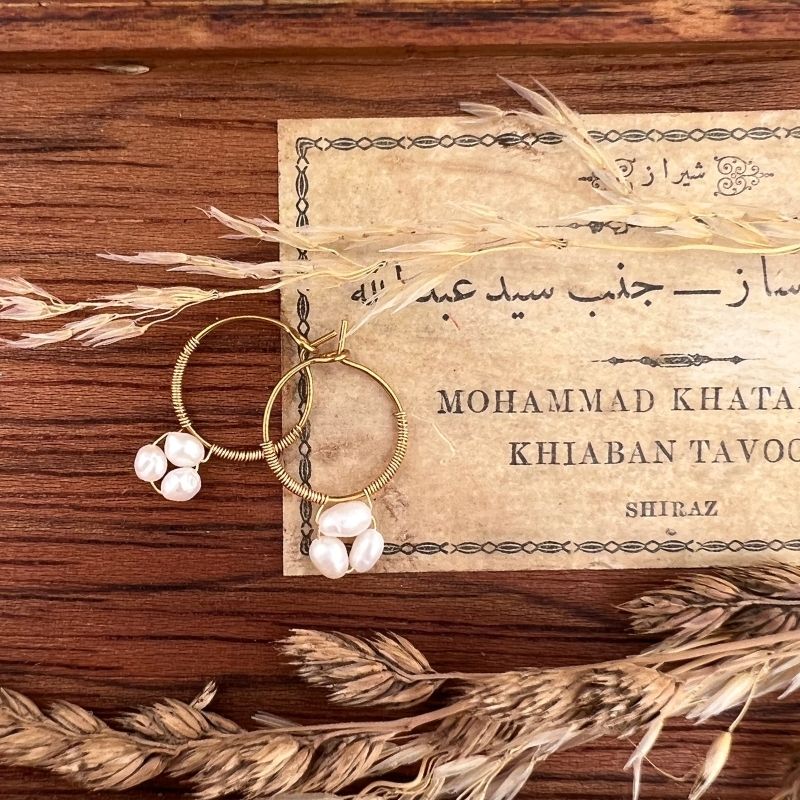 شیراز
ساز — جنب سید عبدالله
MOHAMMAD KHATA
KHIABAN TAVOO
SHIRAZ